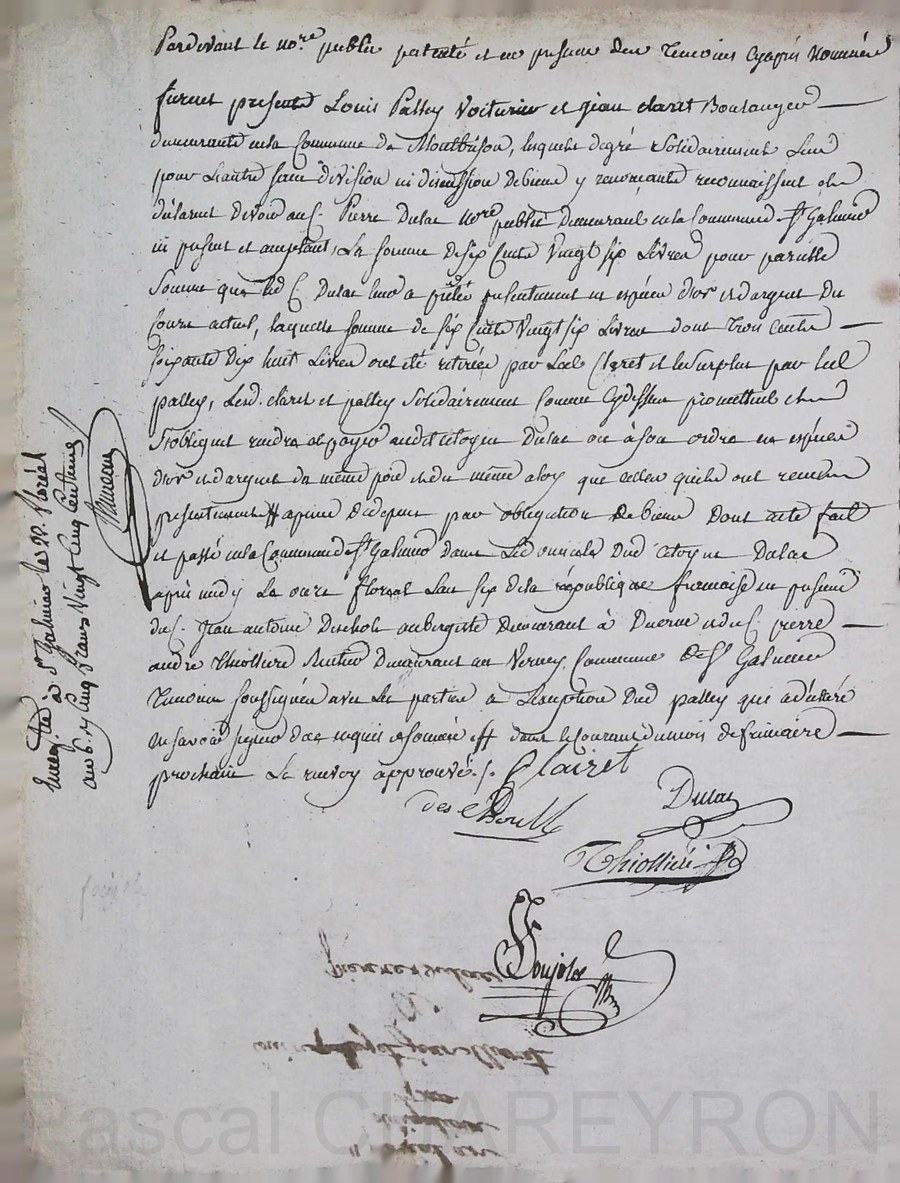 Pardevant le no.re public patenté et en presence des Temoins cyaprès Nommées
furent presents Louis Palley Voiturier et jean claret Boulanger
demeurants en la Commune de Montbrison, lesquels de gré solidairement l'un
pour l'autre sans division ni discussion de biens y renonçants reconnaissent et
déclarent devoir au C. Pierre Dulac no.re public demeurant en la Commune de St Galmier
ici present et acceptant, La somme de six cents Vingt six Livres pour pareille
Somme que led C. Dulac leur a prêté presentement en espèces d'or et d'argent du
Cours actuel, laquelle somme de six Cents Vingt six Livres dont trois Cents
soixante dix huit Livres ont été retirées par led Claret et le surplus par led
palley, Lesd. claret et palley solidairement Comme cydessus promettent et
s'obligent rendre et payer audit citoyen Dulac ou à son ordre en espèces
d'or et d'argent de même poid et du même aloy que celles qu'ils ont reçues
presentement # a peine de depens par obligation de biens Dont acte fait
et passé en la Commune de St Galmier dans le domicile dud citoyen Dulac
après midy Le onze floreal L'an six de la république française en presence
du C. Jean antoine Deschols aubergiste demeurant à et du C. pierre
andré Thiolliere demeurant au Verney Commune de St Galmier
Temoins soussignées avec les parties a L'exception dud palley qui a déclaré
ne savoir signer de ce requis et sommé # dans le Courant du mois de frimaire
prochain Le renvoy approuvé ./. Clairet
Dulac
Thiolliere
Soujolot
Enreg.tré à St Galmier le 22 floréal
an 6. r. cinq francs Vingt cinq Centimes
Pierre Dulac